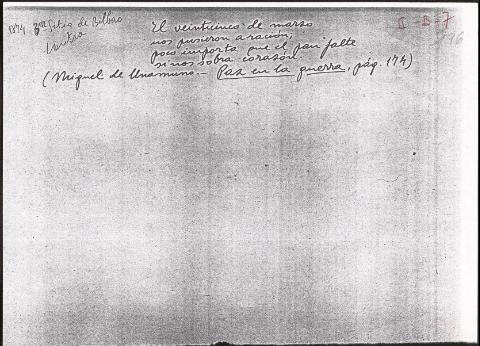 1874 3er Sitio de Bilbao
El veinticinco de marzo
nos pusieron a ración,
poco importa que el pan falte
si nos sobra corazón.
(Miguel de Unamuno.- Paz en la guerra, pág. 174)
C-B-7